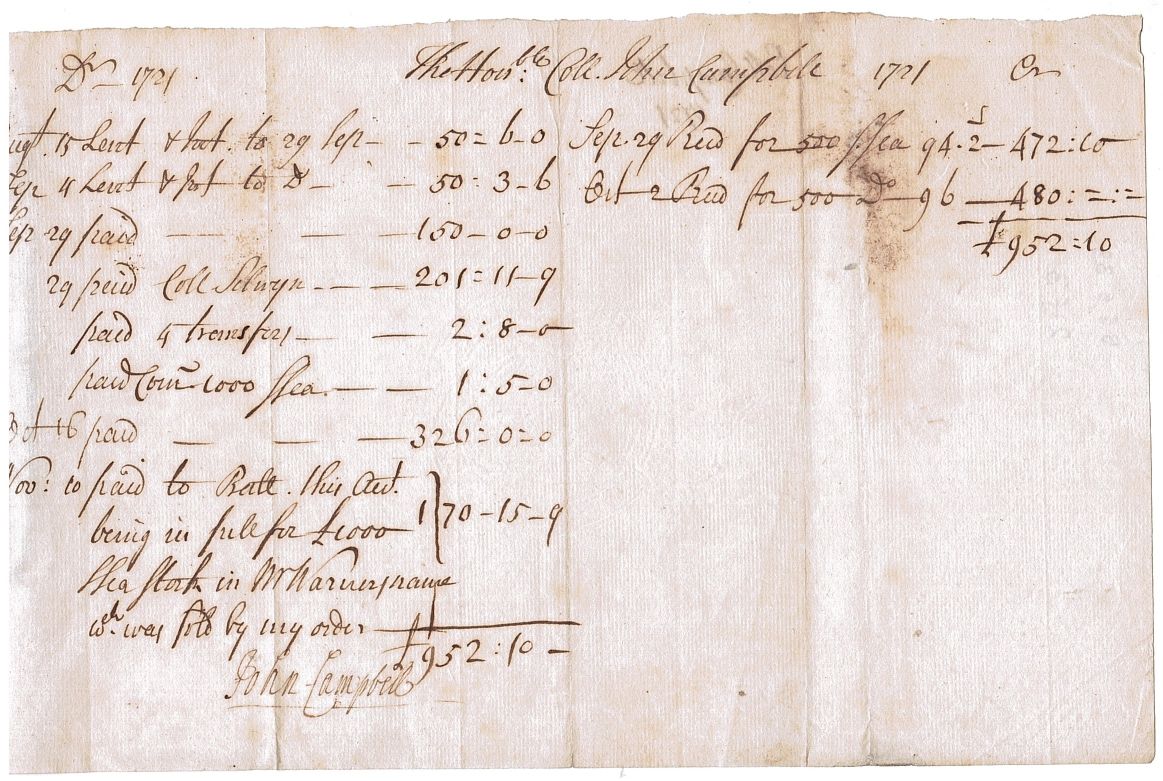 Dr 1721 The Honble: Coll. John Campbell 1721 Cr
Augt. 15 Lent & Int. to 29 Sep - - 50 = 6 - 0
Sep 4 Lent & Int to Do - - 50 : 3 - 6
Sep 29 paid - - - 150 - 0 - 0
29 paid Coll Selwyn - - - 201 = 11 - 9
paid 4 transfers - - 2 : 8 - 0
paid Com 1000 SSea. - - 1 : 5 - 0
Oct 16 paid - - - 326 = 0 = 0
Nov: 10 paid to Ball. this Acct.
being in full for £1000 170 - 15 - 9
SSea Stock in Mr Warners name
wch. was sold by my order
£952 : 10 -
John Campbell
Sep. 29 Recd for 500 SSea 94 . 1/2 - 472 : 10
Oct 2 Recd for 500 Do - 96 - 480 : = : =
£952 = 10